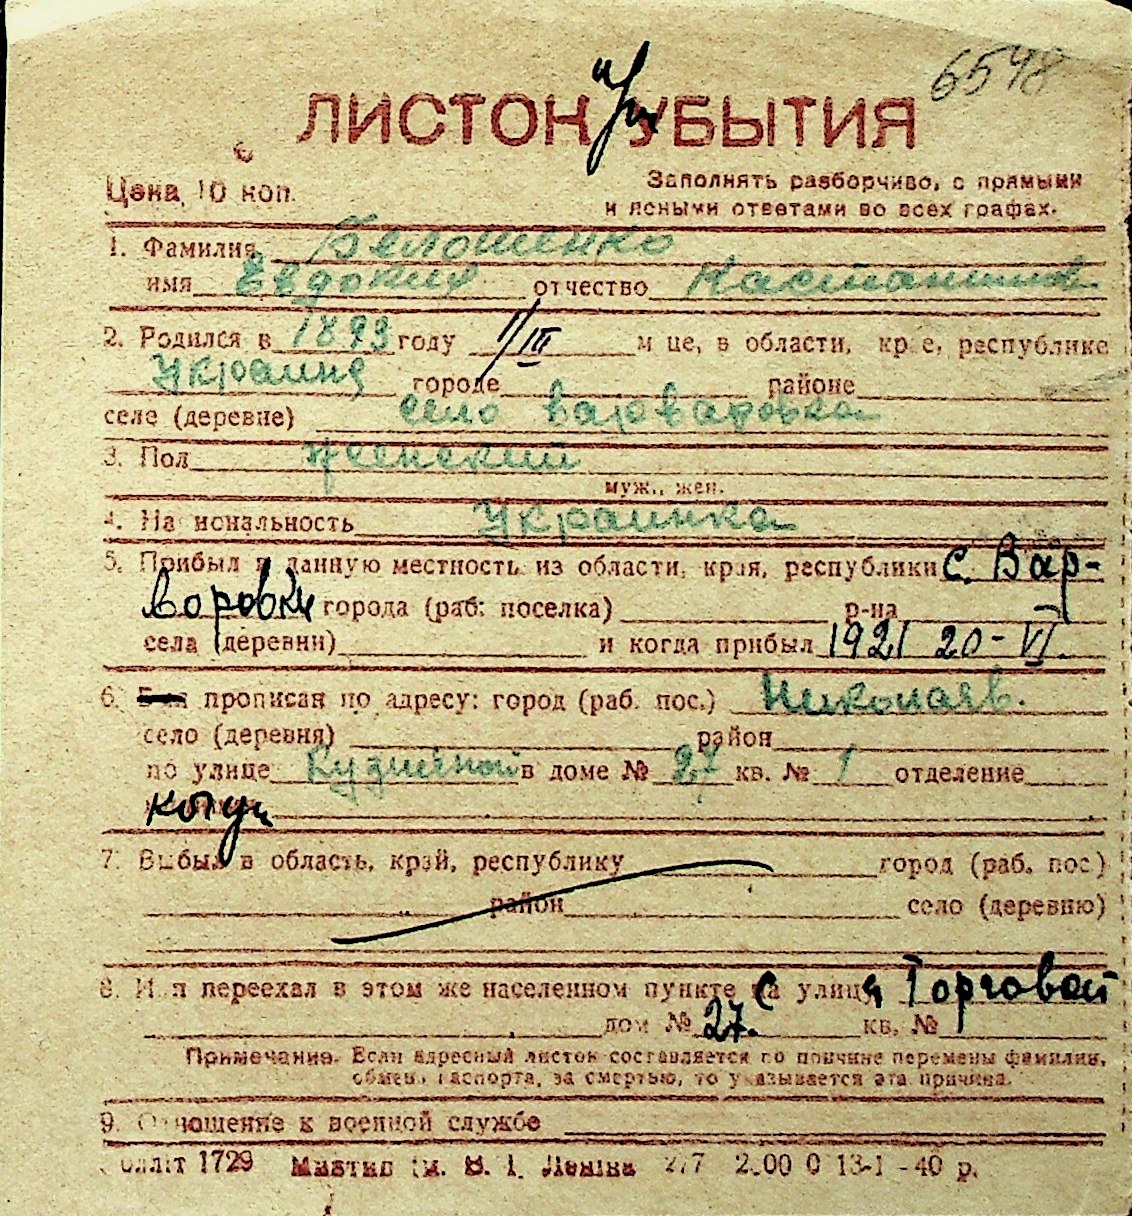 6548
ЛИСТОК УБЫТИЯ
Цена 10 коп.
Заполнять разборчиво, с прямыми
и ясными ответами во всех графах.
1. Фамилия Белошенко
имя Евдокия отчество
2. Родился в 1893 году 1/III м-це, в области, крае, республике
Украина городе районе
селе (деревне) село Варваровка
3. Пол женский
муж., жен.
4. Национальность Украинка
5. Прибыл в данную местность из области, края, республики с. Вар-
воровки города (раб. поселка) р-на
села (деревни) и когда прибыл 1921 20-VI.
6. прописан по адресу: город (раб. пос.) Николаев.
село (деревня) район
по улице Кузнечной в доме № 27 кв. № 1 отделение
7. Выбыл в область, край, республику город (раб. пос.)
район село (деревню)
8. Или переехал в этом же населенном пункте с улицы Торговой
дом № 27. кв. №
Примечание. Если адресный листок составляется по причине перемены фамилии,
обмена паспорта, за смертью, то указывается эта причина.
9. Отношение к военной службе
1729 им. В. І. Леніна 13-I-40 р.